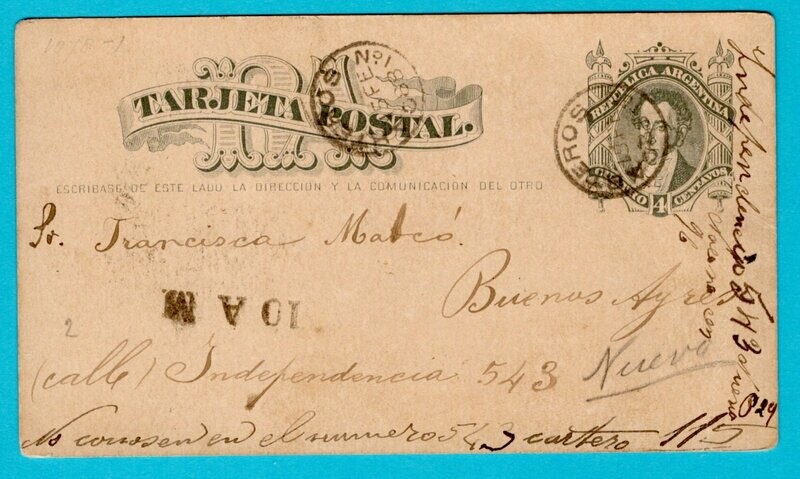 TARJETA POSTAL.
ESCRIBASE DE ESTE LADO LA DIRECCION Y LA COMUNICACION DEL OTRO
REPUBLICA ARGENTINA
CUATRO 4 CENTAVOS
Nº1
FE
Sr. Francisca Marcó.
Buenos Ayres
10 A M
2
(calle) Independencia 543
Nuevo
No conosen en el numero 543 cartero 115
y Independencia 543 nuevo
no conosen
824